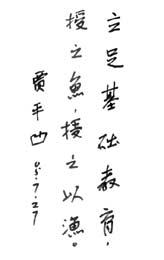 立足基础教育,
授之魚,授之以漁。
賈平凹 05.7.27